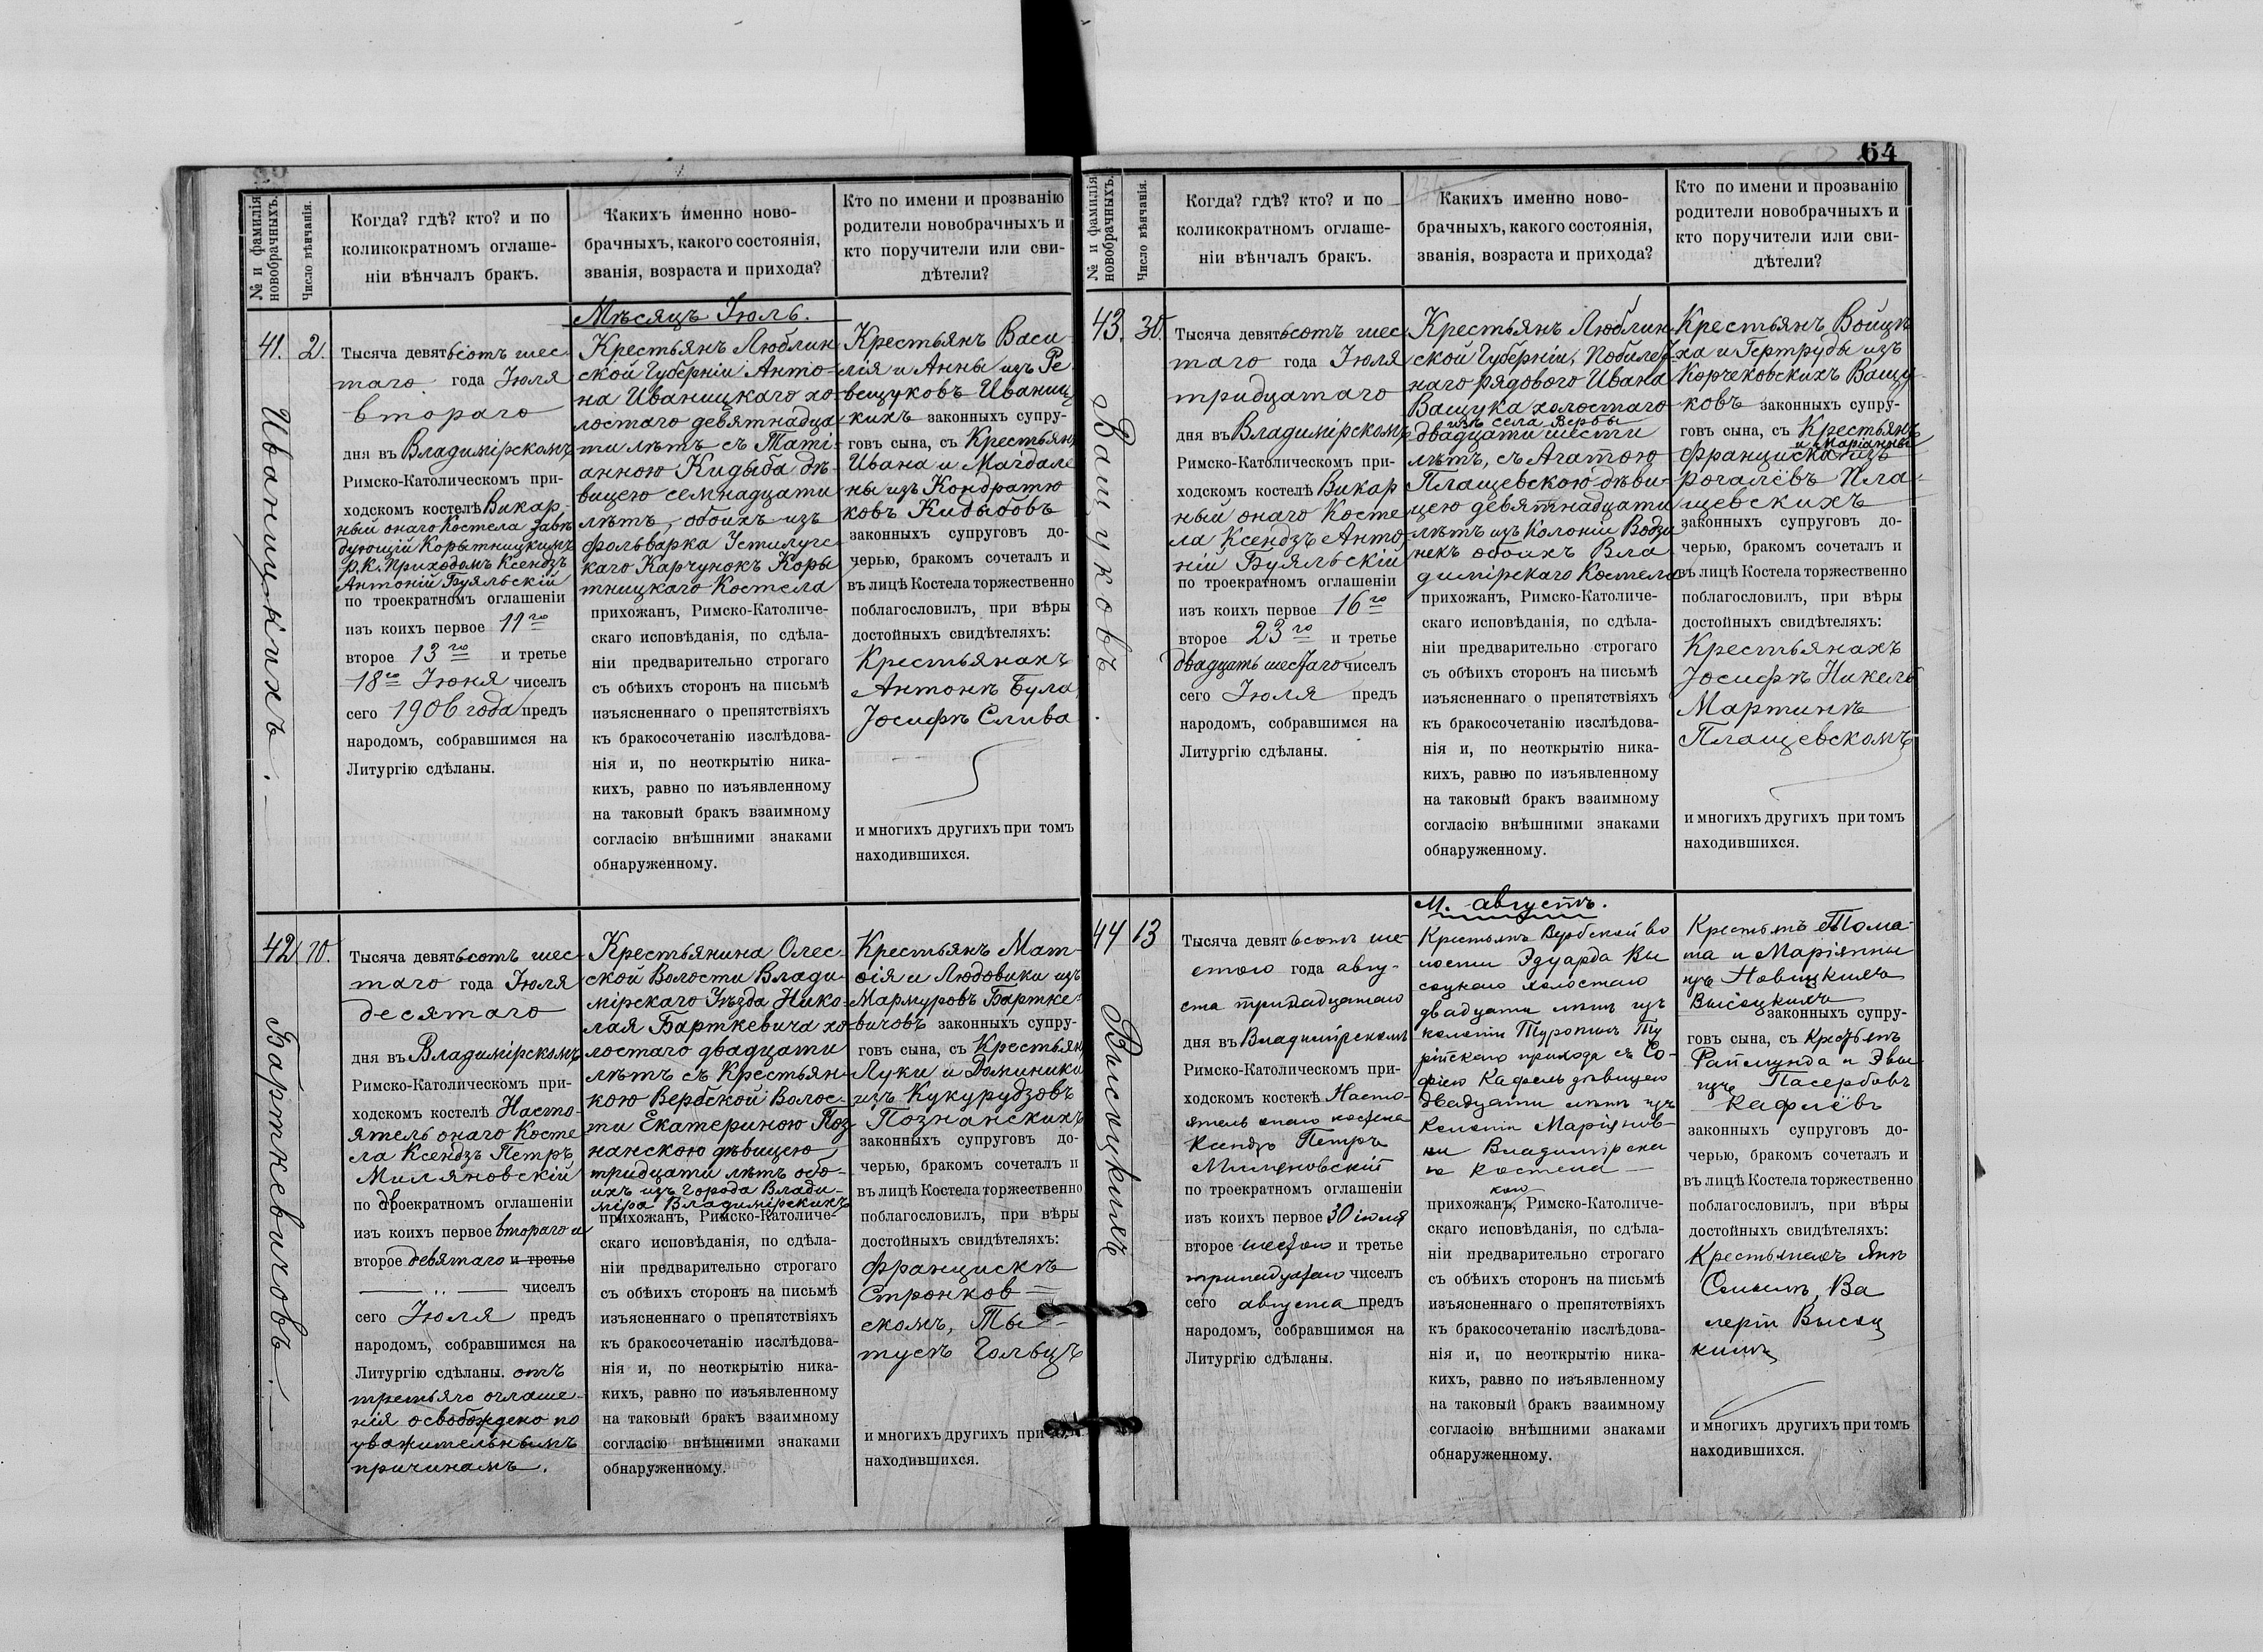 № и фамилія новобрачныхъ.
Число вѣнчанія.
Когда? гдѣ? кто? и по
коликократномъ оглаше-
ніи вѣнчалъ бракъ.
Какихъ именно ново-
брачныхъ, какого состоянія,
званія, возраста и прихода?
Кто по имени и прозванію
родители новобрачныхъ и
кто поручители или сви-
дѣтели?
Мѣсяцъ Іюль.
41.
2.
Иваницкихъ.
Тысяча девятьсотъ шес
таго года Іюля
втораго
дня въ Владимірскомъ
Римско-Католическомъ при-
ходскомъ костелѣ Викар
ный онаго Костела Завѣ
дующій Корытницкимъ
Р.К. Приходомъ Ксендзъ
Антоній Буяльскій
по троекратномъ оглашеніи
изъ коихъ первое 11го
второе 13го и третье
18го Іюня чиселъ
сего 1906 года предъ
народомъ, собравшимся на
Литургію сдѣланы.
Крестьянъ Люблин
ской Губерніи Анто-
на Иваницкаго хо-
лостаго девятнадца
ти лѣтъ съ Таті-
анною Кидыба дѣ-
вицею семнадцати
лѣтъ, обоихъ изъ
фольварка Устилугс
каго Карчунокъ Коры
тницкаго Костела
прихожанъ, Римско-Католиче-
скаго исповѣданія, по сдѣла-
ніи предварительно строгаго
съ обѣихъ сторонъ на письмѣ
изъясненнаго о препятствіяхъ
къ бракосочетанію изслѣдова-
нія и, по неоткрытію ника-
кихъ, равно по изъявленному
на таковый бракъ взаимному
согласію внѣшними знаками
обнаруженному.
Крестьянъ Васи-
лія и Анны изъ Ре
вещуковъ Иваниц
кихъ законныхъ супру-
говъ сына, съ Крестьян
Ивана и Магдале
ны изъ Кондратю
ковъ Кидыбовъ
законныхъ супруговъ до-
черью, бракомъ сочеталъ и
въ лицѣ Костела торжественно
поблагословилъ, при вѣры
достойныхъ свидѣтеляхъ:
Крестьянахъ
Антонѣ Була
Іосифѣ Слива
и многихъ другихъ при томъ
находившихся.
42.
10.
Барткевичовъ.
Тысяча девятьсотъ шес
таго года Іюля
десятаго
дня въ Владимірскомъ
Римско-Католическомъ при-
ходскомъ костелѣ Насто-
ятель онаго Косте
ла Ксендзъ Петръ
Миляновскій
по двоекратномъ оглашеніи
изъ коихъ первое втораго и
второе девятаго и третье
чиселъ
сего Іюля предъ
народомъ, собравшимся на
Литургію сдѣланы. отъ
третьяго оглаше-
нія освобождено по
уважительнымъ
причинамъ.
Крестьянина Олес-
ской Волости Влади
мірскаго Уѣзда Нико-
лая Барткевича хо-
лостаго двадцати
лѣтъ съ Крестьян-
кою Вербской Волос-
ти Екатериною Поз-
нанскою дѣвицею
тридцати лѣтъ обо-
ихъ изъ города Влади-
міра Владимірскихъ
прихожанъ, Римско-Католиче-
скаго исповѣданія, по сдѣла-
ніи предварительно строгаго
съ обѣихъ сторонъ на письмѣ
изъясненнаго о препятствіяхъ
къ бракосочетанію изслѣдова-
нія и, по неоткрытію ника-
кихъ, равно по изъявленному
на таковый бракъ взаимному
согласію внѣшними знаками
обнаруженному.
Крестьянъ Мат-
ѳія и Людовики изъ
Мармуровъ Бартке-
вичовъ законныхъ супру-
говъ сына, съ Крестьян
Луки и Доминики
изъ Кукурудзовъ
Познанскихъ
законныхъ супруговъ до-
черью, бракомъ сочеталъ и
въ лицѣ Костела торжественно
поблагословилъ, при вѣры
достойныхъ свидѣтеляхъ:
Францискѣ
Стронков-
скомъ, Ты-
тусѣ Гольцъ
и многихъ другихъ при
находившихся.
64
№ и фамилія новобрачныхъ.
Число вѣнчанія.
Когда? гдѣ? кто? и по
коликократномъ оглаше-
ніи вѣнчалъ бракъ.
Какихъ именно ново-
брачныхъ, какого состоянія,
званія, возраста и прихода?
Кто по имени и прозванію
родители новобрачныхъ и
кто поручители или сви-
дѣтели?
43.
30.
Ващуковъ.
Тысяча девятьсотъ шес
таго года Іюля
тридцатаго
дня въ Владимірскомъ
Римско-Католическомъ при-
ходскомъ костелѣ Викар
ный онаго Косте
ла Ксендзъ Анто
ній Буяльскій
по троекратномъ оглашеніи
изъ коихъ первое 16го
второе 23го и третье
двадцать шестаго чиселъ
сего Іюля предъ
народомъ, собравшимся на
Литургію сдѣланы.
Крестьянъ Люблин
ской Губерніи,
наго рядового Ивана
Ващука холостаго
изъ села Вербы
двадцати шести
лѣтъ, съ Агатою
Плащевскою дѣви-
цею девятнадцати
лѣтъ изъ Колоніи Водзи
некъ обоихъ Вла
димірскаго Костела
прихожанъ, Римско-Католиче-
скаго исповѣданія, по сдѣла-
ніи предварительно строгаго
съ обѣихъ сторонъ на письмѣ
изъясненнаго о препятствіяхъ
къ бракосочетанію изслѣдова-
нія и, по неоткрытію ника-
кихъ, равно по изъявленному
на таковый бракъ взаимному
согласію внѣшними знаками
обнаруженному.
Крестьянъ Войцѣ
ха и Гертруды изъ
Корчековскихъ Ващу-
ковъ законныхъ супру-
говъ сына, съ Крестьянъ
и Маріанны
Франциска изъ
Рогалёвъ Пла-
щевскихъ
законныхъ супруговъ до-
черью, бракомъ сочеталъ и
въ лицѣ Костела торжественно
поблагословилъ, при вѣры
достойныхъ свидѣтеляхъ:
Крестьянахъ
Іосифѣ Никель
Мартинѣ
Плащевскомъ
и многихъ другихъ при томъ
находившихся.
М. августъ.
44
13
Высоцкихъ
Тысяча девятьсотъ ше
стого года авгу-
ста тринадцатаго
дня въ Владимірскомъ
Римско-Католическомъ при-
ходскомъ костекѣ Насто-
ятель онаго костела
Ксендзъ Петръ
Миляновскій
по троекратномъ оглашеніи
изъ коихъ первое 30 іюля
второе шестого и третье
тринадцатаго чиселъ
сего августа предъ
народомъ, собравшимся на
Литургію сдѣланы.
Крестьянъ Вербской во
лости Эдуарда Вы
соцкаго холостаго
двадцати лѣтъ изъ
колоніи Туропинъ Ту
рійскаго прихода съ Со-
фіею Кафель дѣвицею
двадцати лѣтъ изъ
Колоніи Маріянов-
ки Владимірска
го костела
прихожанъ, Римско-Католиче-
скаго исповѣданія, по сдѣла-
ніи предварительно строгаго
съ обѣихъ сторонъ на письмѣ
изъясненнаго о препятствіяхъ
къ бракосочетанію изслѣдова-
нія и, по неоткрытію ника-
кихъ, равно по изъявленному
на таковый бракъ взаимному
согласію внѣшними знаками
обнаруженному.
Крестьянъ Тома-
ша и Маріянны
изъ Новицкихъ
Высоцкихъ
законныхъ супру-
говъ сына, съ Крестьянъ
Раймунда и Эвы
изъ Пасербовъ
Кафлёвъ
законныхъ супруговъ до-
черью, бракомъ сочеталъ и
въ лицѣ Костела торжественно
поблагословилъ, при вѣры
достойныхъ свидѣтеляхъ:
Крестьянахъ Янѣ
Ва
леріи Высоц
кимъ
и многихъ другихъ при томъ
находившихся.